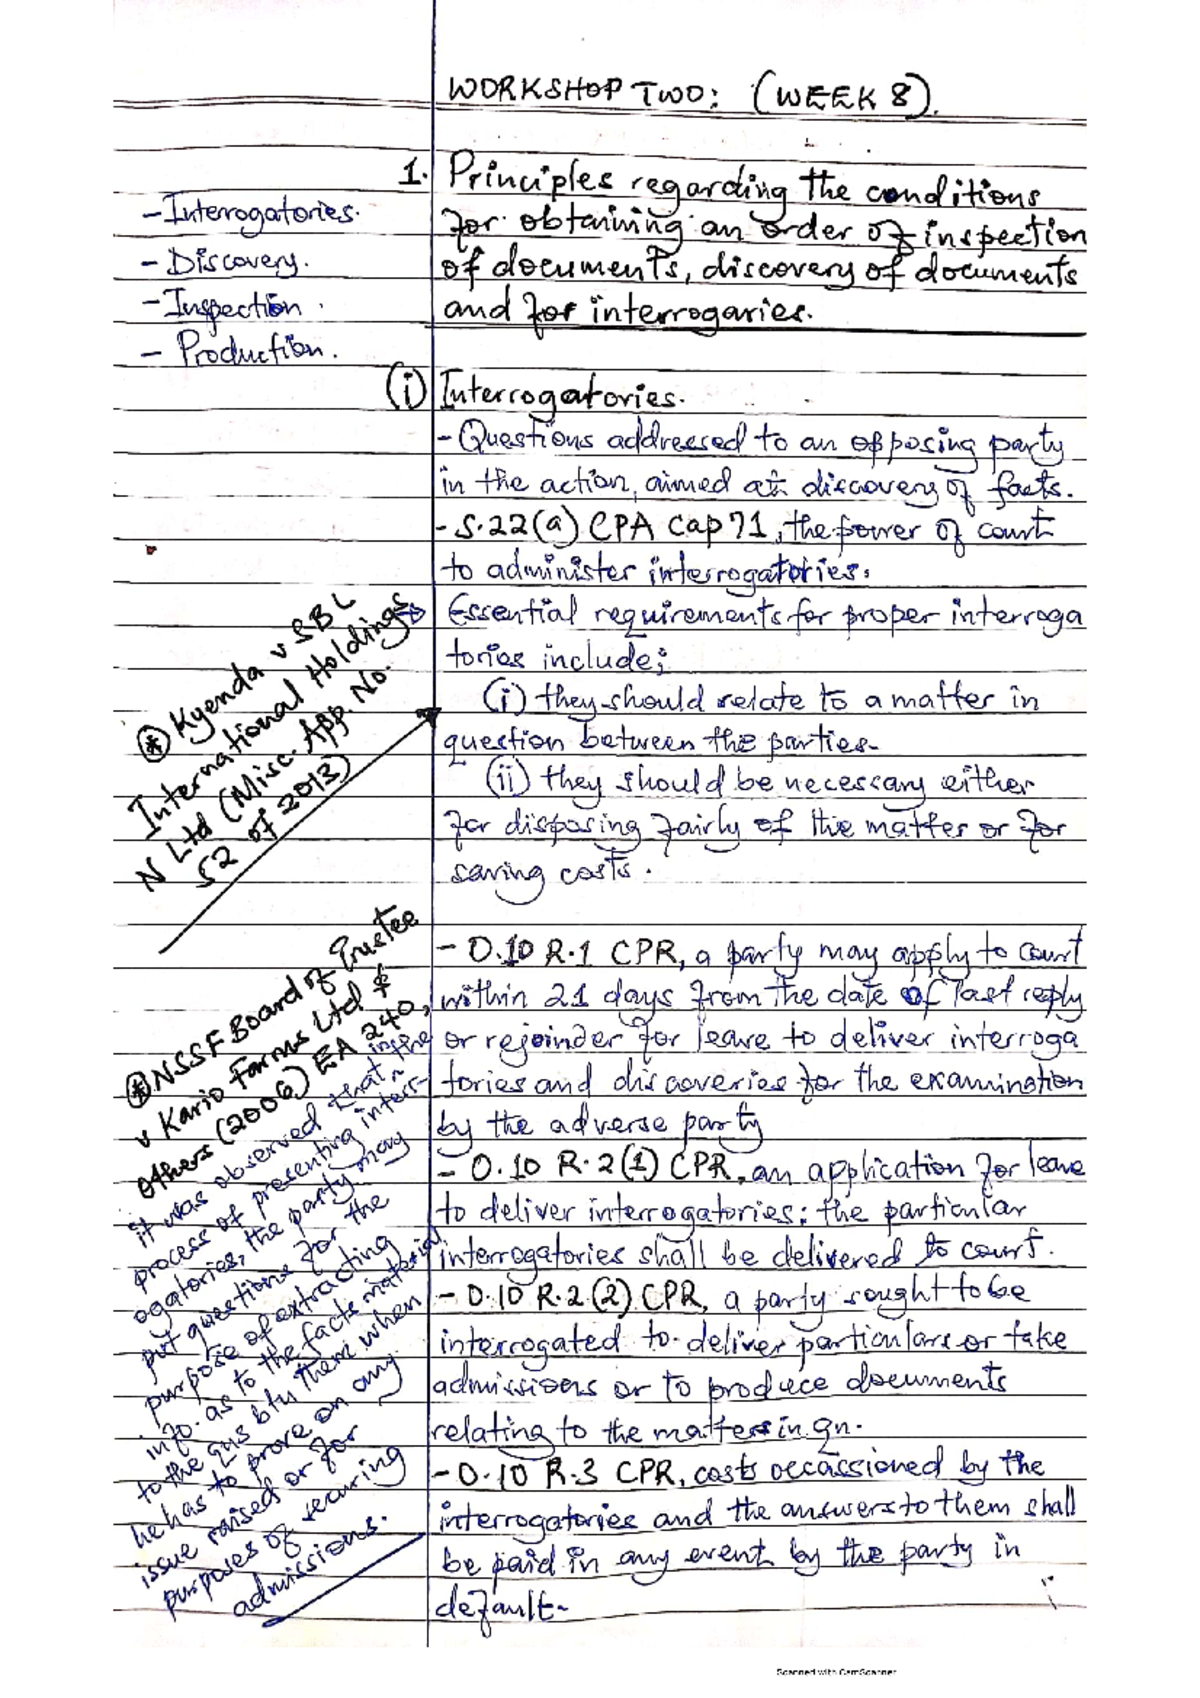 WORKSHOP TWO: (WEEK 8).
1. Principles regarding the conditions
for obtaining an order of inspection
of documents, discovery of documents
and for interrogaries.
- Interrogatories.
- Discovery.
- Inspection.
- Production.
(i) Interrogatories.
- Questions addressed to an opposing party
in the action, aimed at discovery of facts.
- S.22(a) CPA Cap 71, the power of court
to administer interrogatories.
Essential requirements for proper interroga
tories include;
(i) they should relate to a matter in
question between the parties.
(ii) they should be necessary either
for disposing fairly of the matter or for
saving costs.
* Kyenda v SBC
International Holdings
N Ltd (Misc. App. No.
52 of 2013)
- O.10 R.1 CPR, a party may apply to court
within 21 days from the date of last reply
or rejoinder for leave to deliver interroga
tories and discoveries for the examination
by the adverse party
- O.10 R.2(1) CPR, an application for leave
to deliver interrogatories; the particular
interrogatories shall be delivered to court.
- O.10 R.2(2) CPR, a party sought to be
interrogated to deliver particulars or take
admissions or to produce documents
relating to the matters in qn.
- O.10 R.3 CPR, costs occassioned by the
interrogatories and the answers to them shall
be paid in any event by the party in
default.
* NSSF Board of Trustee
v Kario Farms Ltd &
Others (2006) EA 240,
it was observed that in the
process of presenting inter-
ogatories, the party may
put questions for the
purpose of extracting
info. as to the facts material
to the qns btn them when
he has to prove on any
issue raised or for
purposes of securing
admissions.
Scanned with CamScanner